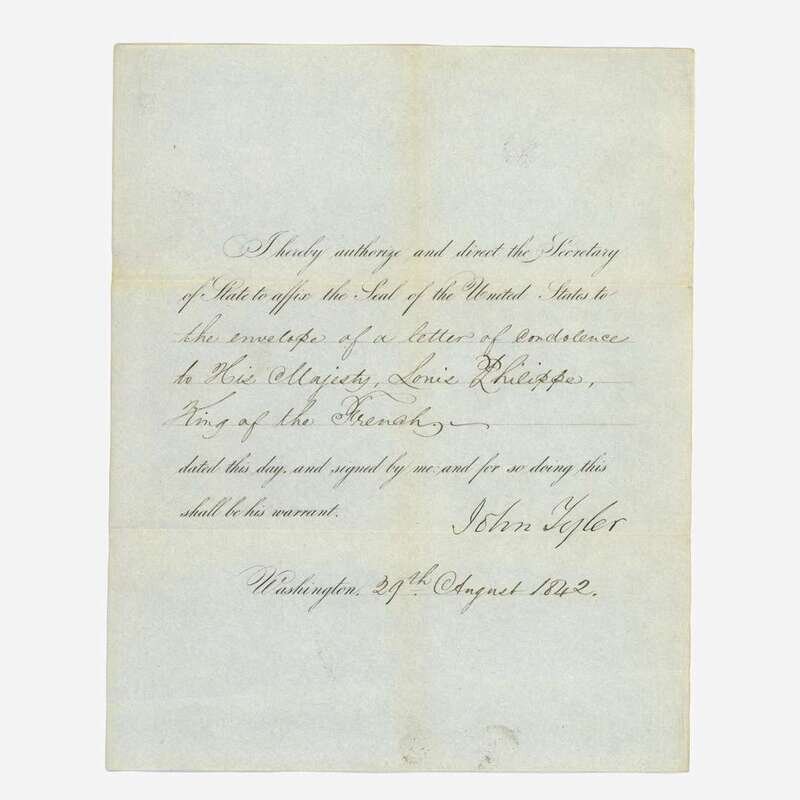 I hereby authorize and direct the Secretary
of State to affix the Seal of the United States to
the envelope of a letter of condolence
to His Majesty, Louis Philippe,
King of the French,
dated this day, and signed by me and for so doing this
shall be his warrant.
John Tyler
Washington, 29th August 1842.